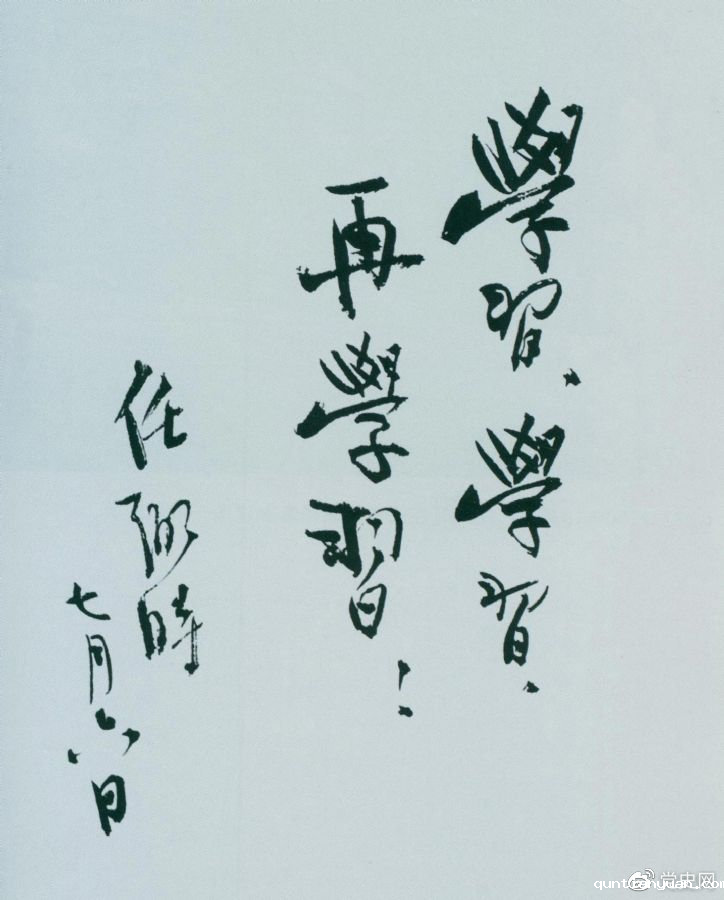 學習、學習、
再學習！
任弼時
七月六日
党史网
quntianyuan.com